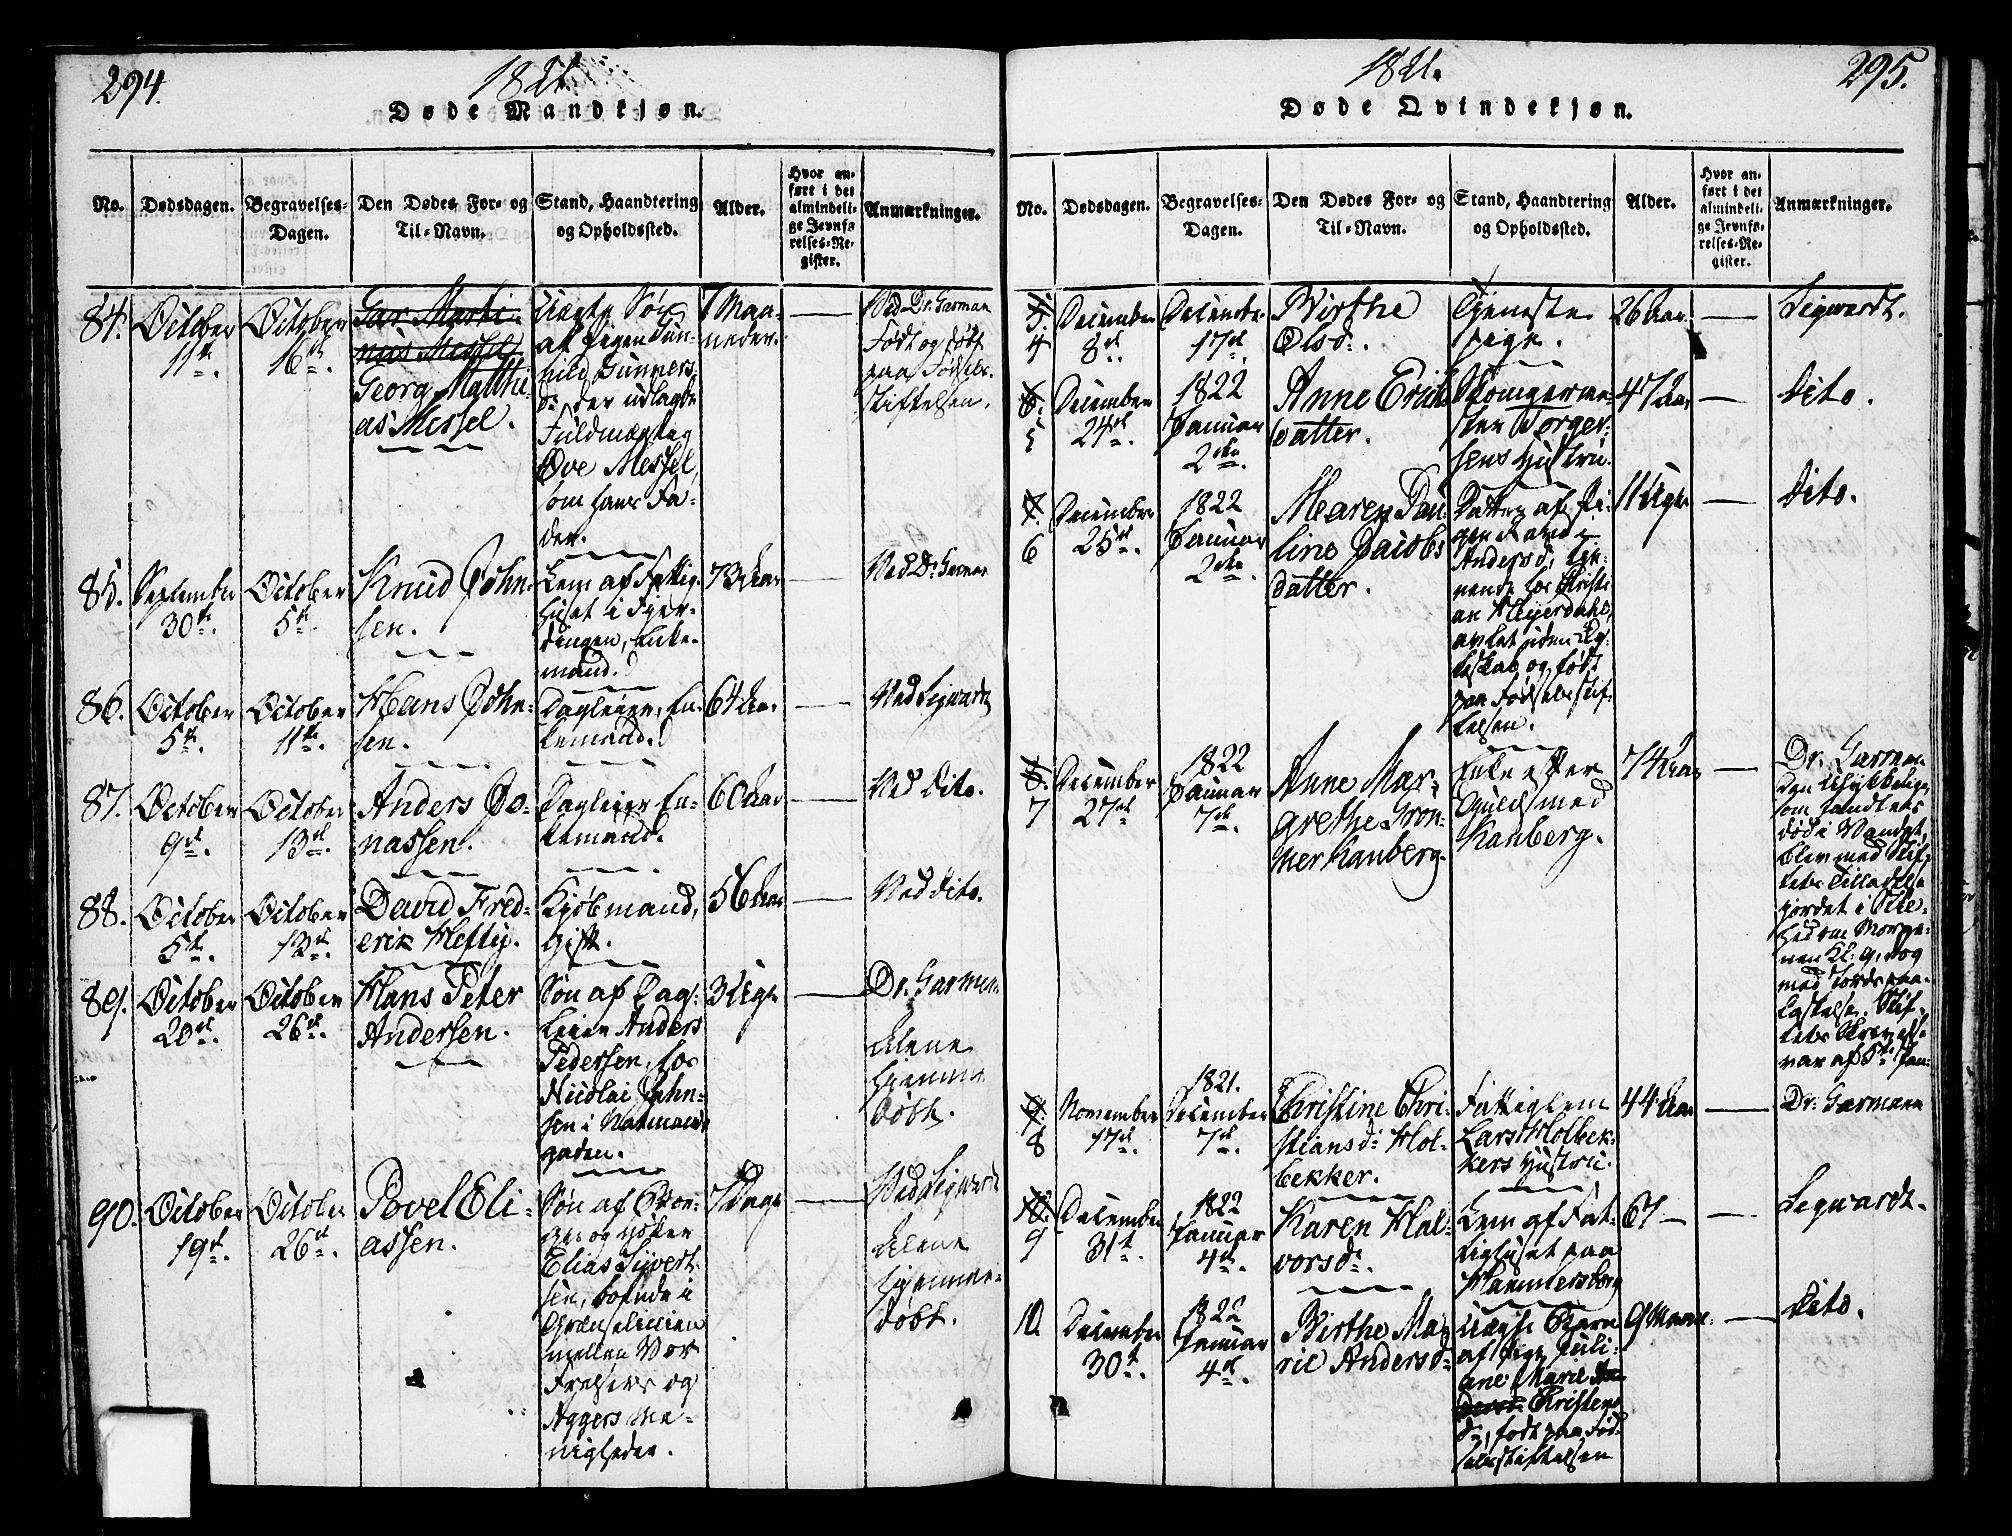 294.
1821.
Døde Mandkjøn.
No.
Dødsdagen.
Begravelses-
Dagen.
Den Dødes For- og
Til-Navn.
Stand, Haandtering
og Opholdssted.
Alder.
Hvor an-
ført i det
almindeli-
ge Jevnfø-
relses-Re-
gister.
Anmærkninger.
84.
October
11te.
October
16de.
Georg Matthi-
as Messel.
Uægte Søn
af Pigen Gun-
hild Gunners
dr. der udlagde
Fuldmægtig
Ove Messel,
som hans Fa-
der.
7 Maa-
neder.
Ved Dr. Garman
Født og døbt
paa Fødsels-
stiftelsen.
85.
September
30te.
October
5te.
Knud John-
sen.
Lem af Fattig-
huset i Fjer-
dingen, Enke-
mand.
73 Aar
Ved Dr. Garman
86.
October
5te.
October
11te.
Hans John-
sen.
Dagleier, En-
kemand.
64 Aar
Ved Sigwardt
87.
October
9de.
October
13de.
Anders Jo-
nassen.
Dagleier En-
kemand.
60 Aar
Ved Dito.
88.
October
5te.
October
12te.
David Fred-
erik Heftij.
Kjøbmand,
Gift.
56 Aar
Ved dito.
89.
October
20de.
October
26de.
Hans Peter
Andersen.
Søn af Dag-
leier Anders
Pedersen, hos
Nicolai John-
sen i Vatmands
gaden.
3 Uger
Dr. Garman
Alene
hjemme
døbt.
90.
October
19de.
October
26de.
Povel Eli-
assen.
Søn af Bor-
ger og
Elias Sijvert-
sen, boende i
Grændselinien
mellem Vor
Frelsers og
Aggers Me-
nigheder.
7 Dage
Ved Sigwardt
Alene
hjemme-
døbt.
295.
1821.
Døde Qvindekjøn.
No.
Dødsdagen.
Begravelses-
Dagen.
Den Dødes For- og
Til-Navn.
Stand, Haandtering
og Opholdssted.
Alder.
Hvor an-
ført i det
almindeli-
ge Jevnfø-
relses-Re-
gister.
Anmærkninger.
4
December
8de.
December
17de.
Birthe
Olsdr.
Tjeneste
pige.
26 Aar.
Sigwardt.
5
December
24de.
1822
Januar
2den.
Anne Erichs
datter.
Skomagerme-
ster Torger-
sens Hustru.
47 Aar
Dito.
6
December
25de.
1822
Januar
2den.
Maren Pau-
line Jacobs
datter.
Datter af Pi-
gen Randi
Andersdr, tje-
nende hos Christi-
an Heijerdahl,
avlet uden Æg-
teskab og født
paa Fødselsstif-
telsen.
11 Uger
Dito.
7
December
27de.
1822
Januar
7de.
Anne Mar-
grethe Gron-
mer Kanberg.
Enke efter
Guldsmed
Kanberg.
74 Aar
Dr. Garman
Den Ulykkelige,
som fandtes
død i Vandet,
blev med Stif-
tets Tilladelse
jordet i Stil-
hed om Morge-
nen Kl: 9, dog
med Jordspaa-
kastelse. Stif-
tets
var af 5te Jan:
8
November
17de.
1821.
December
7de.
Christine Chri-
stiansdr. Hol-
bekker.
Fattiglem
Lars Holbek-
kers Hustru.
44 Aar
Dr. Garmann
9
December
31te.
1822
Januar
4de.
Karen Hal-
vorsdr.
Lem af Fat-
tighuset paa
Hammersborg
67
Sigwardt.
10
December
30te.
1822
Januar
4de.
Birthe Ma-
rie Andersdr.
Uægte Barn
af Pige Juli-
ane Marie
Christens
dr, født paa Fød-
selsstiftelsen
9 Maan:
Dito.